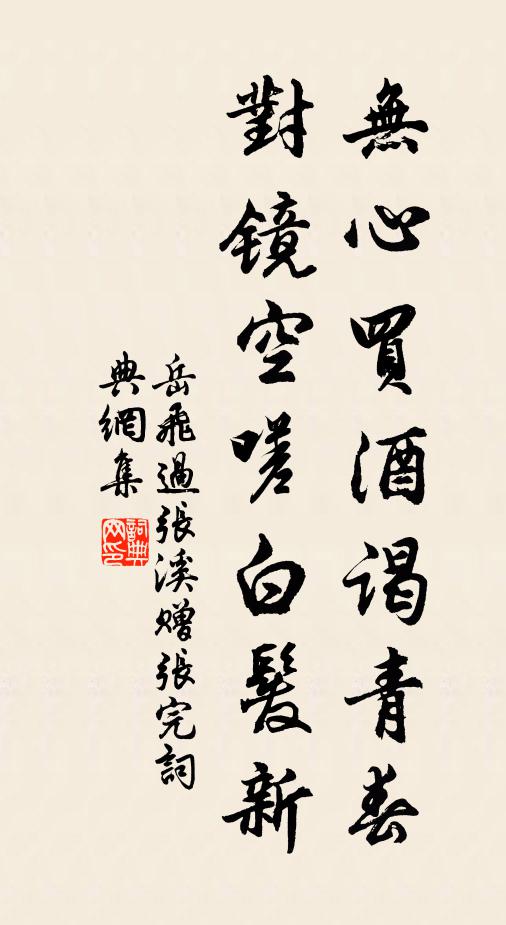 無心買酒謁青春
對镜空嗟白髮新
岳飛過張溪赠張完詞
典網集
詞典
网印